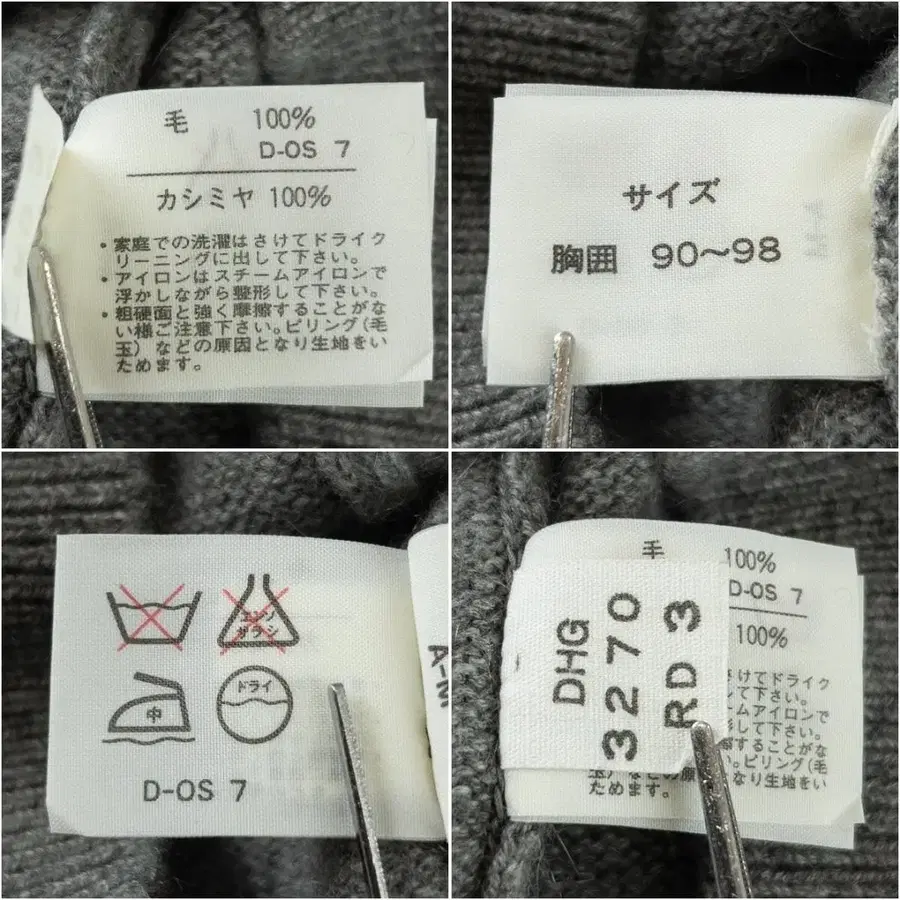 毛 100%
D-OS 7
カシミヤ 100%
・家庭での洗濯はさけてドライク
リーニングに出して下さい。
・アイロンはスチームアイロンで
浮かしながら整形して下さい。
・粗硬面と強く摩擦することがな
い様ご注意下さい。ピリング(毛
玉)などの原因となり生地をい
ためます。
サイズ
胸囲 90～98
エンソ
サラシ
中
ドライ
D-OS 7
A-M
毛 100%
D-OS 7
100%
DHG
3270
RD 3
けてドライク
して下さい。
ームアイロンで
形して下さい。
擦することがな
。ピリング(毛
なり生地をい
ためます。